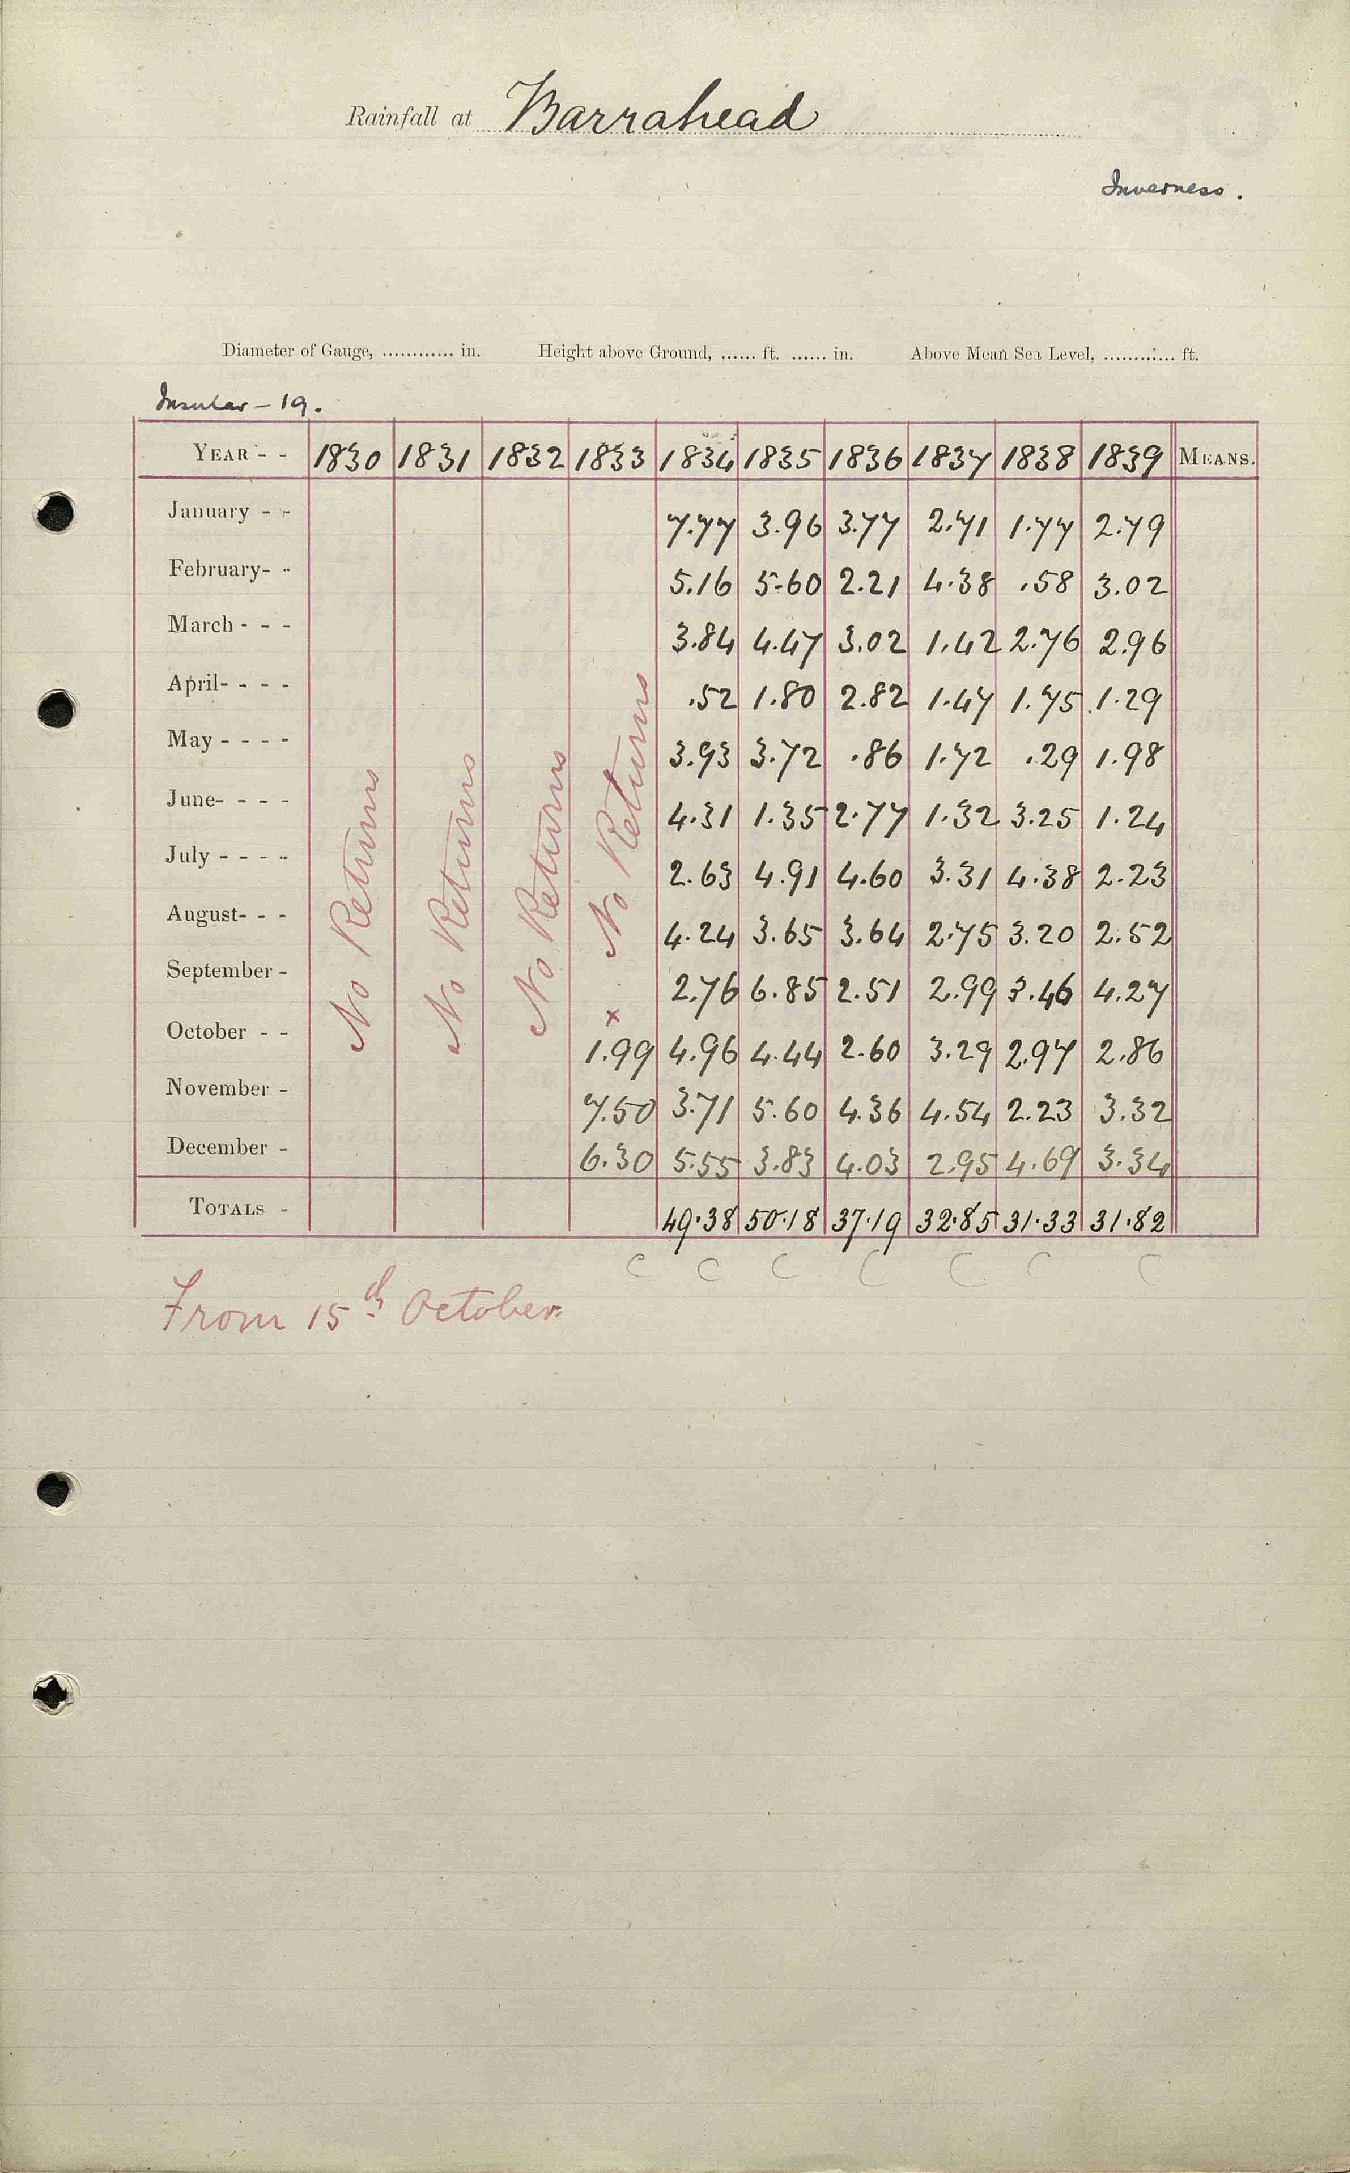 Rainfall at Barrahead
Inverness.
Diameter of Gauge, ............ in. Height above Ground, ...... ft. ...... in. Above Mean Sea Level, ............ ft.
Insular - 19.
YEAR - - 1830 1831 1832 1833 1834 1835 1836 1837 1838 1839 MEANS.
January - - 7.77 3.96 3.77 2.71 1.77 2.79
February- - 5.16 5.60 2.21 4.38 .58 3.02
March - - - 3.84 4.47 3.02 1.42 2.76 2.96
April- - - - .52 1.80 2.82 1.47 1.75 1.29
May - - - - 3.93 3.72 .86 1.72 .29 1.98
June- - - - 4.31 1.35 2.77 1.32 3.25 1.24
July - - - - 2.63 4.91 4.60 3.31 4.38 2.23
August- - - 4.24 3.65 3.64 2.75 3.20 2.52
September - 2.76 6.85 2.51 2.99 3.46 4.27
October - - x 1.99 4.96 4.44 2.60 3.29 2.97 2.86
November - 7.50 3.71 5.60 4.36 4.54 2.23 3.32
December - 6.30 5.55 3.83 4.03 2.95 4.69 3.34
TOTALS - 49.38 50.18 37.19 32.85 31.33 31.82
No Returns
No Returns
No Returns
No Returns
C C C C C C C
From 15th October.